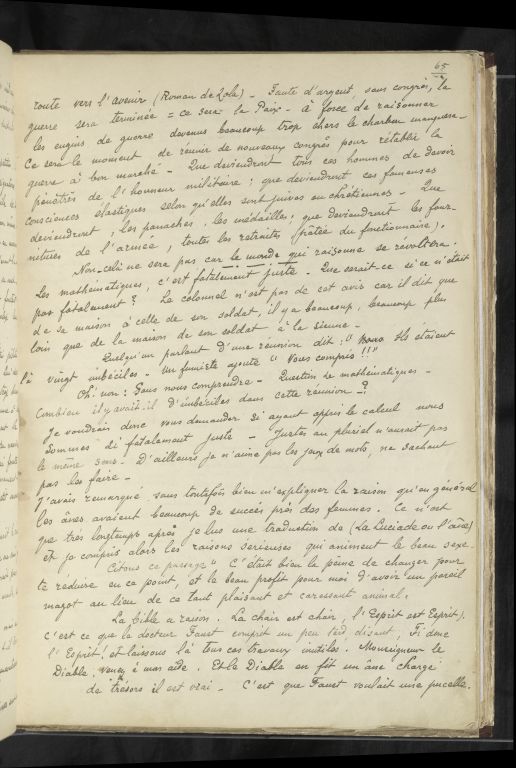 65
route vers l'avenir (Roman de Zola) - Faute d'argent, sans congrès, la
guerre sera terminée = ce sera la Paix - à force de raisonner
les engins de guerre devenus beaucoup trop chers le charbon manquera -
Ce sera le moment de réunir de nouveaux congrès pour rétablir la
guerre à bon marché - Que deviendront tous ces hommes de devoir
pénétrés de l'honneur militaire ; que deviendront ces fameuses
consciences élastiques selon qu'elles sont juives ou chrétiennes - Que
deviendront, les panaches, les médailles ; que deviendront les four-
nitures de l'armée, toutes les retraites (prêtée du fonctionnaire),
Non - celà ne sera pas car le monde qui raisonne se révoltera.
Les mathématiques, c'est fatalement juste - Que serait-ce si ce n'était
pas fatalement ? Le colonel n'est pas de cet avis car il dit que
de sa maison à celle de son soldat, il y a beaucoup, beaucoup plus
loin que de la maison de son soldat à la sienne -
Quelqu'un parlant d'une réunion dit : " nous Ils étaient
là vingt imbéciles - Un fumiste ajouta " Vous compris !! "
Oh! non : Sans nous comprendre - Question de mathématiques -
Combien il y avait-il d'imbéciles dans cette réunion - ?
Je voudrais donc vous demander si ayant appris le calcul nous
sommes si fatalement juste - Justes au pluriel n'aurait pas
le même sens - D'ailleurs je n'aime pas les jeux de mots, ne sachant
pas les faire -
J'avais remarqué sans toutefois bien m'expliquer la raison qu'en général
les ânes avaient beaucoup de succès près des femmes. Ce n'est
que très longtemps après je lus une traduction de (La Luciade ou l'âne)
et je compris alors les raisons sérieuses qui animent le beau sexe -
Citons ce passage " C'était bien la peine de changer pour
te réduire en ce point, et le beau profit pour moi d'avoir un pareil
magot au lieu de ce tant plaisant et caressant animal,
La Bible a raison. La chair est chair, l'Esprit est Esprit).
c'est ce que le docteur Faust comprit un peu tard, disant, Fi donc
l'Esprit! et laissons là tous ces travaux inutiles. Monseigneur le
Diable, venez à mon aide. Et le Diable en fit un âne chargé
de trésors il est vrai - C'est que Faust voulait une pucelle.